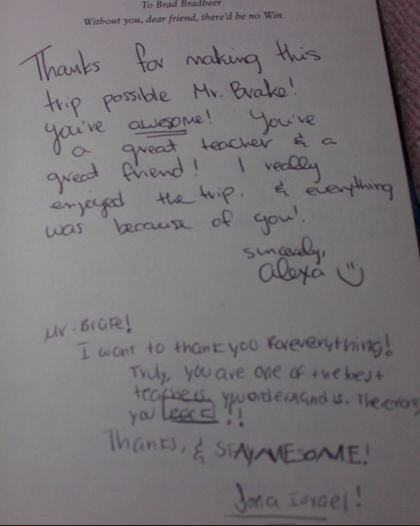 To Brad Bradbeer
Without you, dear friend, there'd be no Win
Thanks for making this
trip possible Mr. Brake!
You've awesome! You've
a great teacher & a
great friend! I really
enjoyed the trip. & everything
was because of you!
sincerely,
alexa
Mr. Brake!
I want to thank you for everything!
Truly, you are one of the best
teachers, you understand us.
you
Thanks, & STAY AWESOME!
Jona Israel!